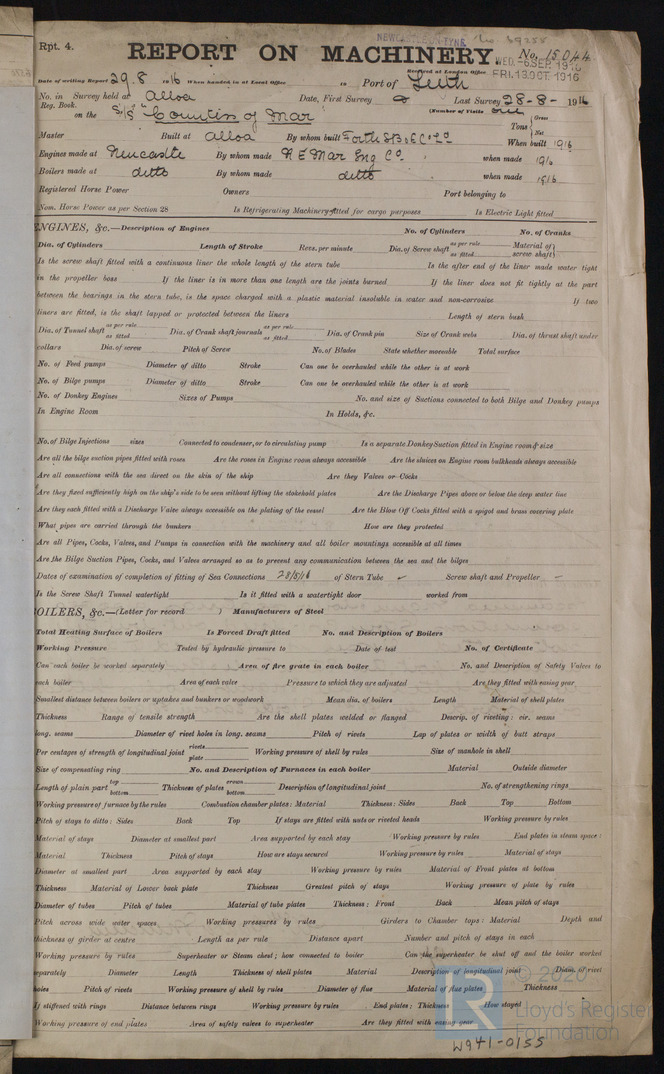 Rpt. 4.
REPORT ON MACHINERY.
NEWCASTLE-ON-TYNE No. 69255
No. 15044
WED. 6 SEP. 1916
FRI. 13 OCT 1916
Received at London Office
Date of writing Report 29.8 1916 When handed in at Local Office 10 Port of Leith
No. in Survey held at Alloa Date, First Survey Last Survey 28-8-1916
Reg. Book.
(Number of Visits one)
on the S/S "Countess of Mar" Tons Gross Net
Master Built at Alloa By whom built Forth S.B. & E. Co Ld When built 1916
Engines made at Newcastle By whom made N E Mar Eng Co. when made 1916
Boilers made at ditto By whom made ditto when made 1916
Registered Horse Power Owners Port belonging to
Nom. Horse Power as per Section 28 Is Refrigerating Machinery fitted for cargo purposes Is Electric Light fitted
ENGINES, &c.—Description of Engines No. of Cylinders No. of Cranks
Dia. of Cylinders Length of Stroke Revs. per minute Dia. of Screw shaft as per rule as fitted Material of screw shaft
Is the screw shaft fitted with a continuous liner the whole length of the stern tube Is the after end of the liner made water tight
in the propeller boss If the liner is in more than one length are the joints burned If the liner does not fit tightly at the part
between the bearings in the stern tube, is the space charged with a plastic material insoluble in water and non-corrosive If two
liners are fitted, is the shaft lapped or protected between the liners Length of stern bush
Dia. of Tunnel shaft as per rule as fitted Dia. of Crank shaft journals as per rule as fitted Dia. of Crank pin Size of Crank webs Dia. of thrust shaft under
collars Dia. of screw Pitch of Screw No. of Blades State whether moveable Total surface
No. of Feed pumps Diameter of ditto Stroke Can one be overhauled while the other is at work
No. of Bilge pumps Diameter of ditto Stroke Can one be overhauled while the other is at work
No. of Donkey Engines Sizes of Pumps No. and size of Suctions connected to both Bilge and Donkey pumps
In Engine Room In Holds, &c.
No. of Bilge Injections sizes Connected to condenser, or to circulating pump Is a separate Donkey Suction fitted in Engine room & size
Are all the bilge suction pipes fitted with roses Are the roses in Engine room always accessible Are the sluices on Engine room bulkheads always accessible
Are all connections with the sea direct on the skin of the ship Are they Valves or Cocks
Are they fixed sufficiently high on the ship's side to be seen without lifting the stokehold plates Are the Discharge Pipes above or below the deep water line
Are they each fitted with a Discharge Valve always accessible on the plating of the vessel Are the Blow Off Cocks fitted with a spigot and brass covering plate
What pipes are carried through the bunkers How are they protected
Are all Pipes, Cocks, Valves, and Pumps in connection with the machinery and all boiler mountings accessible at all times
Are the Bilge Suction Pipes, Cocks, and Valves arranged so as to prevent any communication between the sea and the bilges
Dates of examination of completion of fitting of Sea Connections 28/8/16 of Stern Tube ✓ Screw shaft and Propeller –
Is the Screw Shaft Tunnel watertight Is it fitted with a watertight door worked from
OILERS, &c.—(Letter for record ) Manufacturers of Steel
Total Heating Surface of Boilers Is Forced Draft fitted No. and Description of Boilers
Working Pressure Tested by hydraulic pressure to Date of test No. of Certificate
Can each boiler be worked separately Area of fire grate in each boiler No. and Description of Safety Valves to
each boiler Area of each valve Pressure to which they are adjusted Are they fitted with easing gear
Smallest distance between boilers or uptakes and bunkers or woodwork Mean dia. of boilers Length Material of shell plates
Thickness Range of tensile strength Are the shell plates welded or flanged Descrip. of riveting: cir. seams
long. seams Diameter of rivet holes in long. seams Pitch of rivets Lap of plates or width of butt straps
Per centages of strength of longitudinal joint rivets plate Working pressure of shell by rules Size of manhole in shell
Size of compensating ring No. and Description of Furnaces in each boiler Material Outside diameter
Length of plain part top bottom Thickness of plates crown bottom Description of longitudinal joint No. of strengthening rings
Working pressure of furnace by the rules Combustion chamber plates: Material Thickness: Sides Back Top Bottom
Pitch of stays to ditto: Sides Back Top If stays are fitted with nuts or riveted heads Working pressure by rules
Material of stays Diameter at smallest part Area supported by each stay Working pressure by rules End plates in steam space:
Material Thickness Pitch of stays How are stays secured Working pressure by rules Material of stays
Diameter at smallest part Area supported by each stay Working pressure by rules Material of Front plates at bottom
Thickness Material of Lower back plate Thickness Greatest pitch of stays Working pressure of plate by rules
Diameter of tubes Pitch of tubes Material of tube plates Thickness: Front Back Mean pitch of stays
Pitch across wide water spaces Working pressures by rules Girders to Chamber tops: Material Depth and
thickness of girder at centre Length as per rule Distance apart Number and pitch of stays in each
Working pressure by rules Superheater or Steam chest; how connected to boiler Can the superheater be shut off and the boiler worked
separately Diameter Length Thickness of shell plates Material Description of longitudinal joint Diam. of rivet
holes Pitch of rivets Working pressure of shell by rules Diameter of flue Material of flue plates Thickness
If stiffened with rings Distance between rings Working pressure by rules End plates: Thickness How stayed
Working pressure of end plates Area of safety valves to superheater Are they fitted with easing gear
© 2020
Lloyd's Register
Foundation
W941-0155